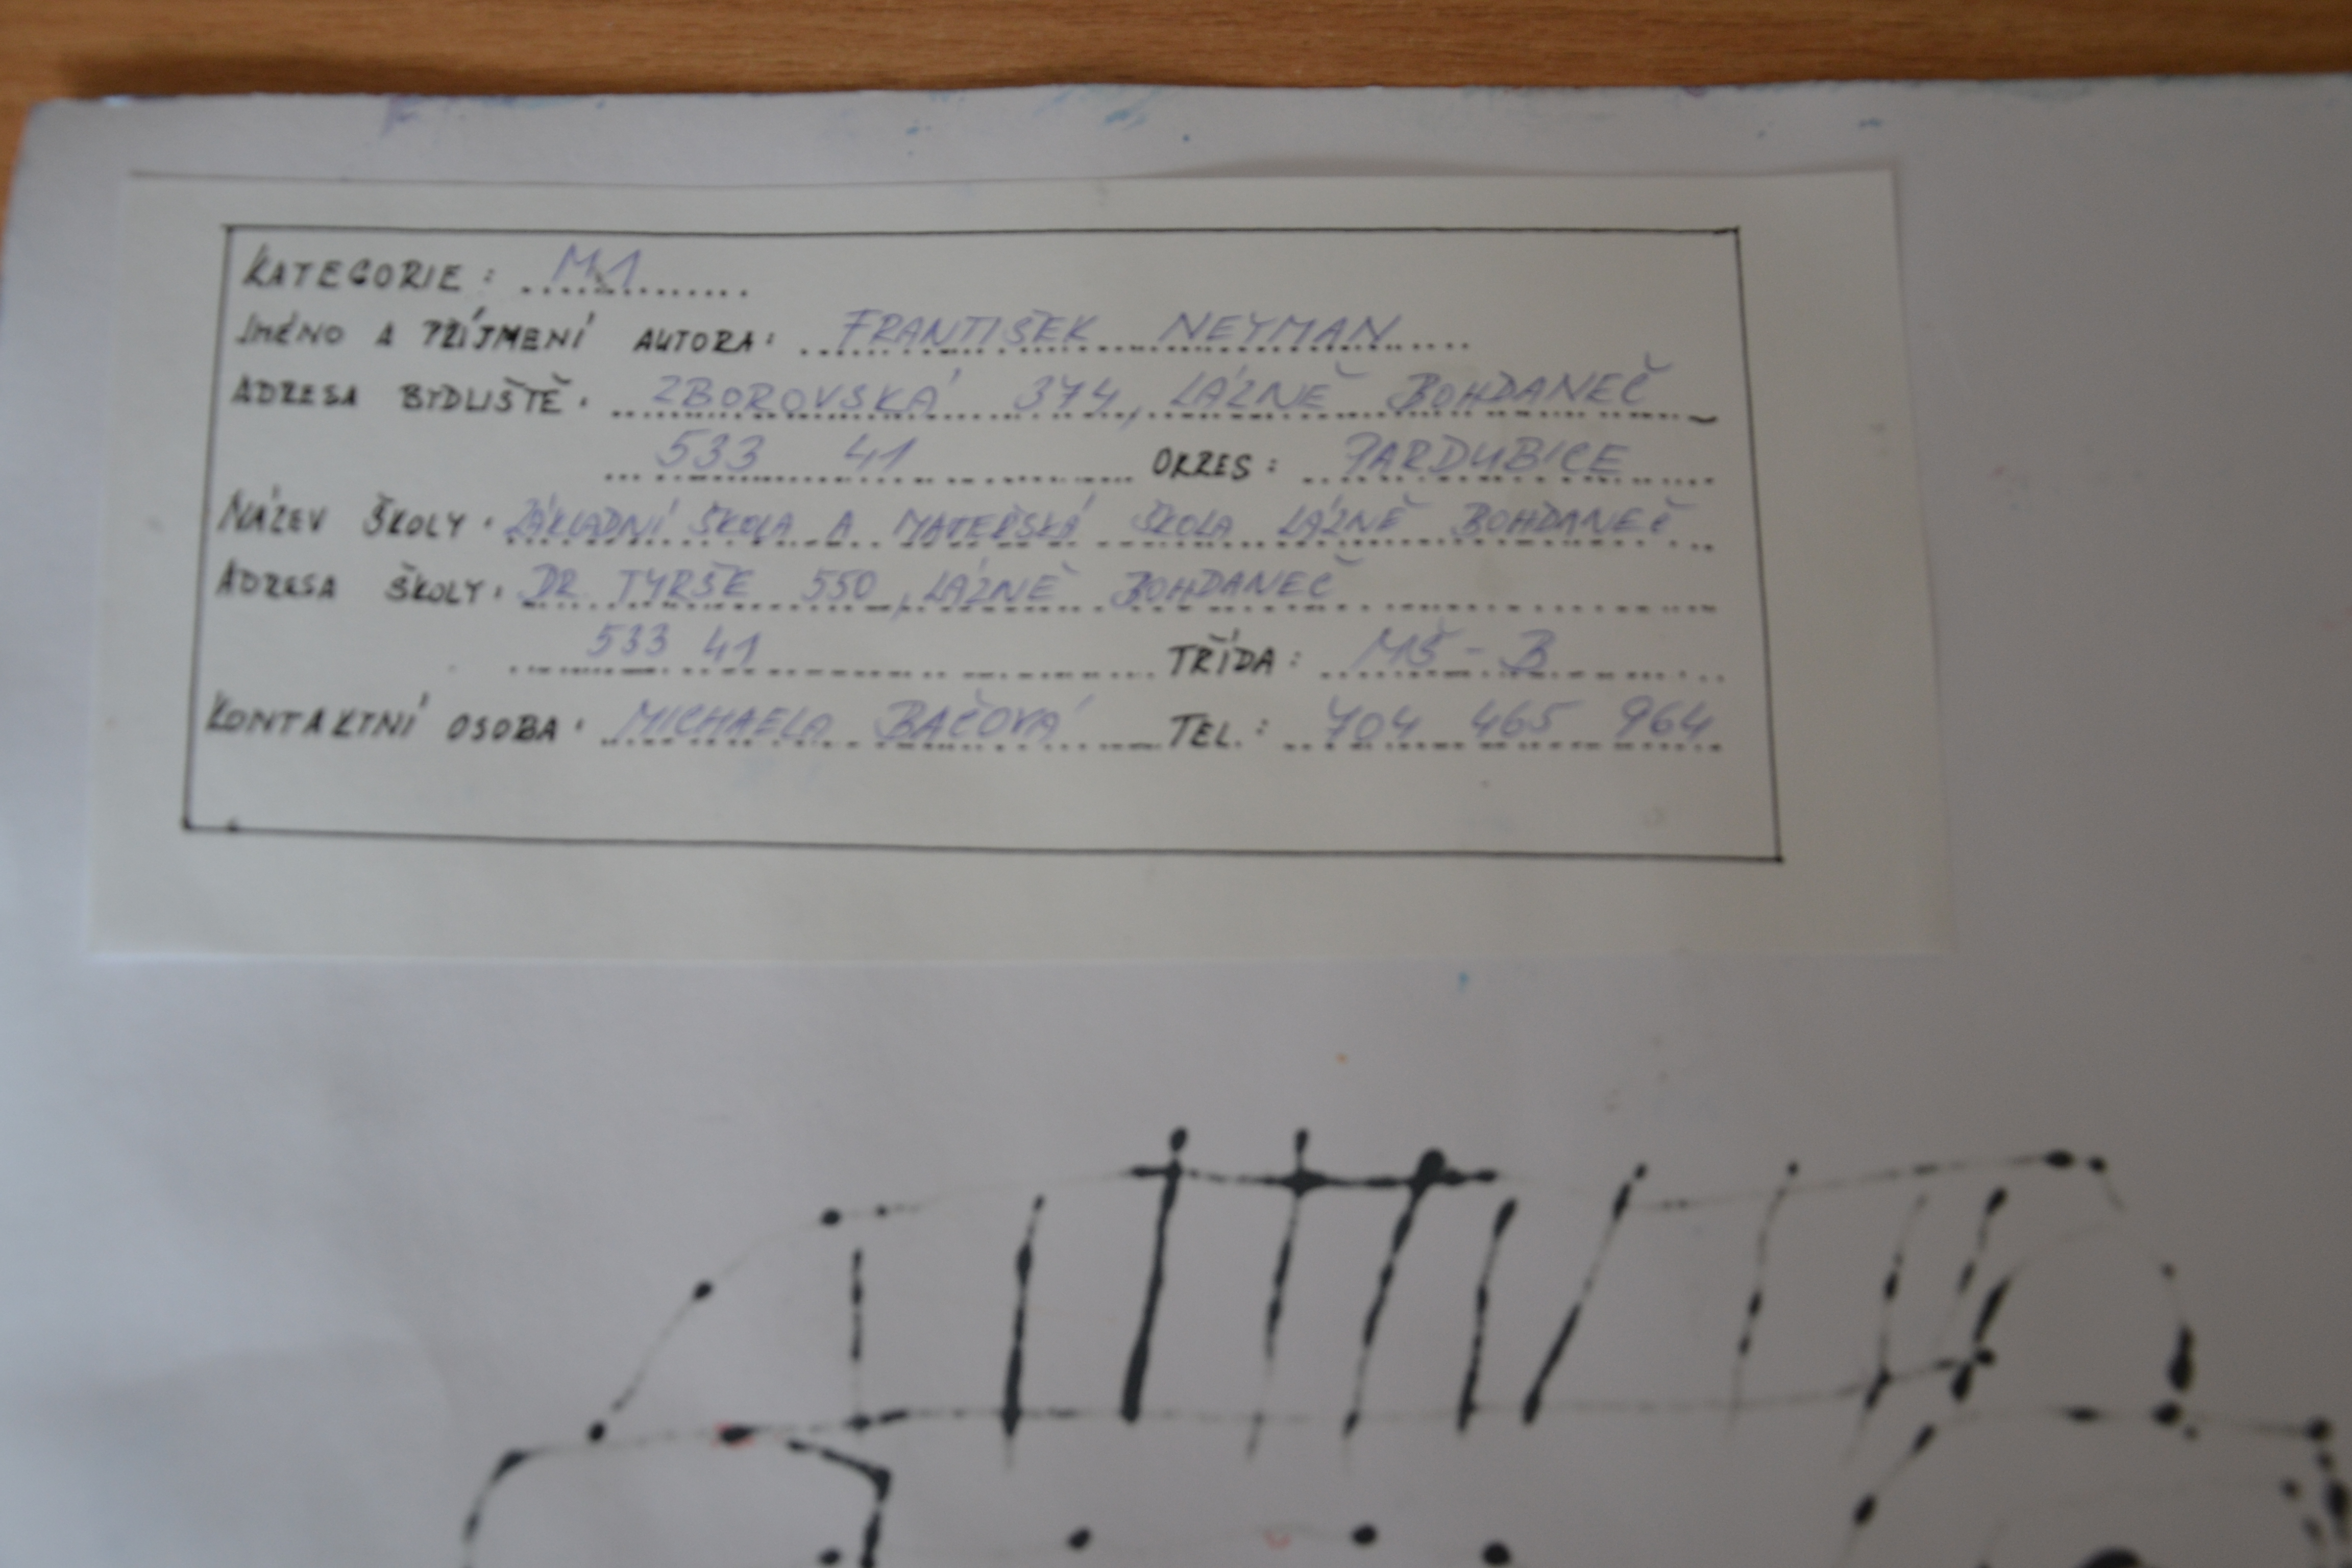 KATEGORIE: M1
JMÉNO A PŘÍJMENÍ AUTORA: FRANTIŠEK NEYMAN
ADRESA BYDLIŠTĚ: ZBOROVSKÁ 374, LÁZNĚ BOHDANEČ
533 41 OKRES: PARDUBICE
NÁZEV ŠKOLY: ZÁKLADNÍ ŠKOLA A MATEŘSKÁ ŠKOLA LÁZNĚ BOHDANEČ
ADRESA ŠKOLY: DR. TYRŠE 550, LÁZNĚ BOHDANEČ
533 41 TŘÍDA: MŠ - B
KONTAKTNÍ OSOBA: MICHAELA BAČOVÁ TEL.: 704 465 964